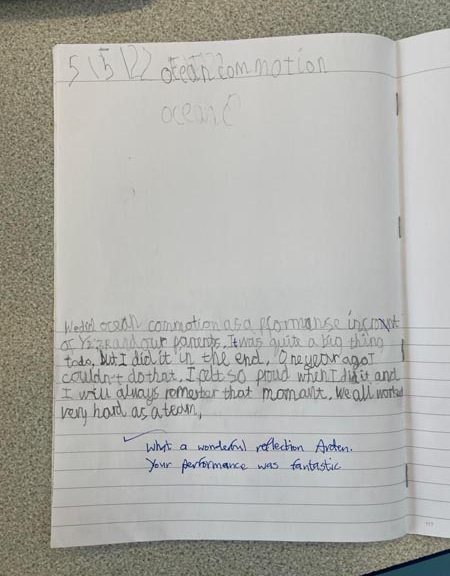 5\5\22 ocean commotion
ocean C
We did ocean commotion as a prormanse in front
of Yr 2 and our parents. It was quite a big thing
todo, but I did it in the end. One year ago I
couldn't do that. I felt so proud when I did it and
I will always remember that momant. We all worked
very hard as a team,
What a wonderful reflection Arden.
Your performance was fantastic